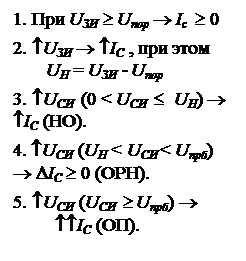 1. При UЗИ ≥ Uпор → Ic ≥ 0
2. ↑UЗИ → ↑IC , при этом
UН = UЗИ - Uпор
3. ↑UСИ (0 < UСИ ≤ UН) →
↑IC (НО).
4. ↑UСИ (UН < UСИ < Uпрб)
→ ΔIC ≥ 0 (ОРН).
5. ↑UСИ (UСИ ≥ Uпрб) →
↑↑IC (ОП).